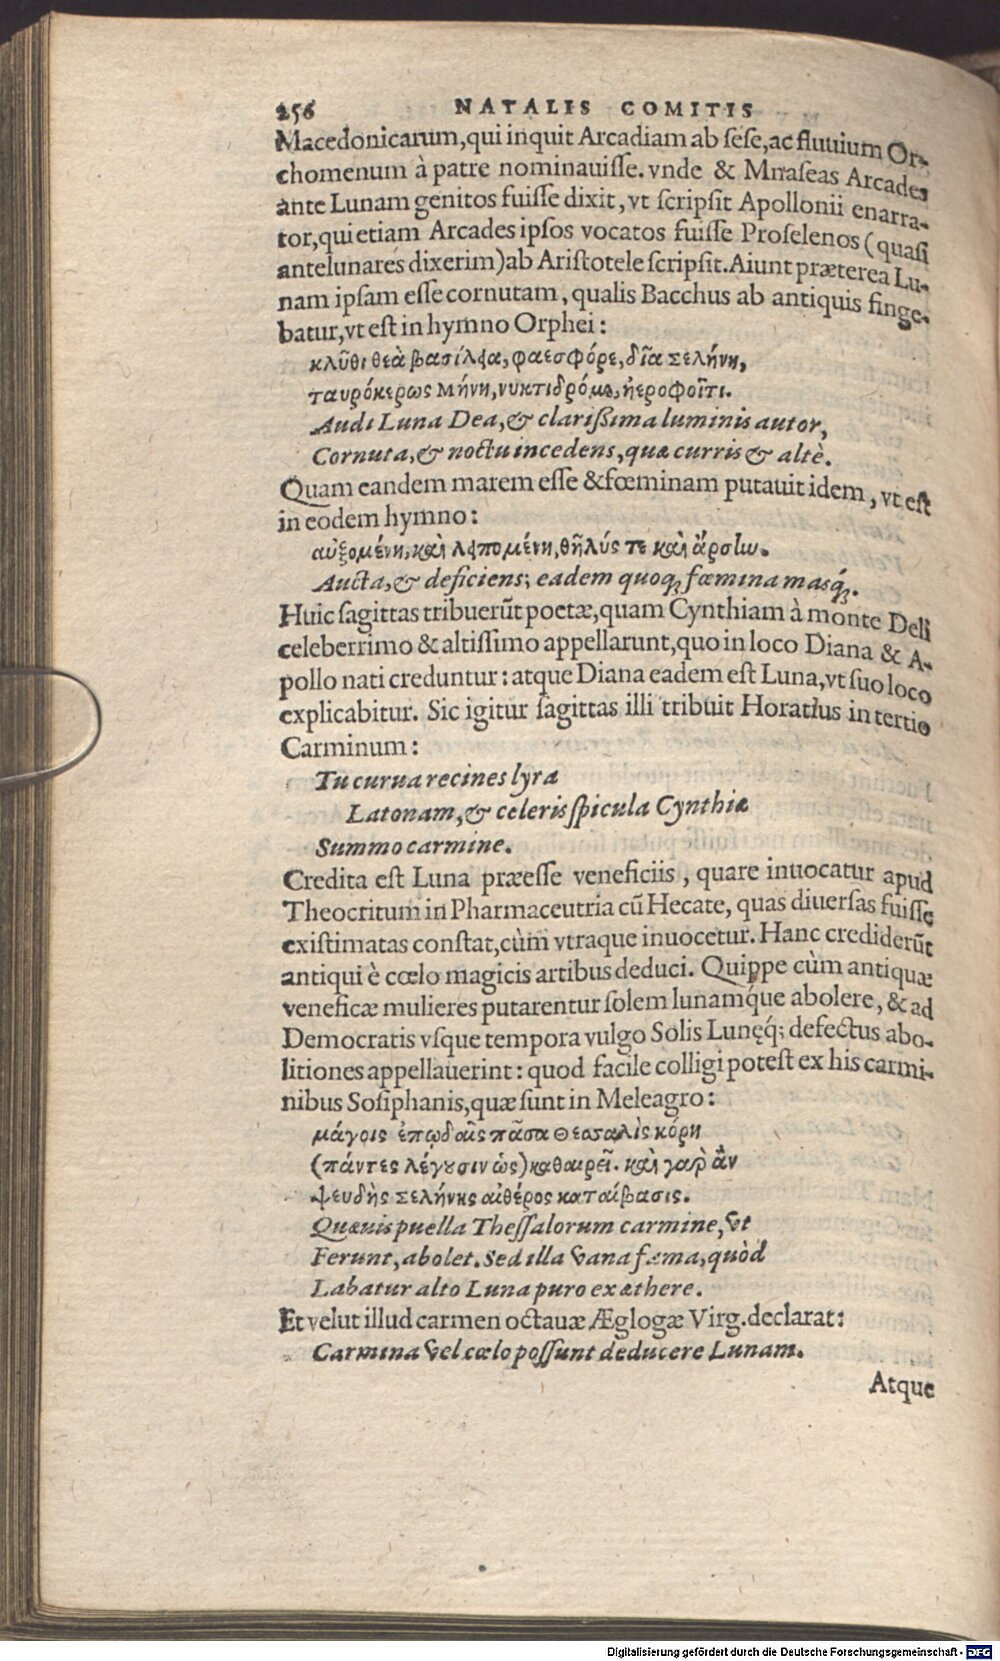 256 NATALIS COMITIS
Macedonicarum, qui inquit Arcadiam ab ſeſe, ac fluuium Or-
chomenum à patre nominauiſſe. vnde & Mnaſeas Arcades
ante Lunam genitos fuiſſe dixit, vt ſcripſit Apollonii enarra-
tor, qui etiam Arcades ipſos vocatos fuiſſe Proſelenos (quaſi
antelunares dixerim) ab Ariſtotele ſcripſit. Aiunt præterea Lu-
nam ipſam eſſe cornutam, qualis Bacchus ab antiquis finge-
batur, vt eſt in hymno Orphei:
κλῦθι θεὰ βασίλεια, φαεσφόρε, δῖα Σελήνη,
ταυρόκερως Μήνη, νυκτιδρόμε, ἠεροφοῖτι.
Audi Luna Dea, & clariſsima luminis autor,
Cornuta, & noctu incedens, quæ curris & altè.
Quam eandem marem eſſe & fœminam putauit idem, vt eſt
in eodem hymno:
αὐξομένη, καὶ λειπομένη, θῆλύς τε καὶ ἄρσην.
Aucta, & deficiens; eadem quoq; fœmina masq́;.
Huic ſagittas tribuerũt poetæ, quam Cynthiam à monte Deli
celeberrimo & altiſſimo appellarunt, quo in loco Diana & A-
pollo nati creduntur: atque Diana eadem eſt Luna, vt ſuo loco
explicabitur. Sic igitur ſagittas illi tribuit Horatius in tertio
Carminum:
Tu curua recines lyra
Latonam, & celeris ſpicula Cynthiæ
Summo carmine.
Credita eſt Luna præeſſe veneficiis, quare inuocatur apud
Theocritum in Pharmaceutria cũ Hecate, quas diuerſas fuiſſe
exiſtimatas conſtat, cùm vtraque inuocetur. Hanc crediderũt
antiqui è cœlo magicis artibus deduci. Quippe cùm antiquæ
veneficæ mulieres putarentur ſolem lunamq́ue abolere, & ad
Democratis vſque tempora vulgo Solis Lunęq́; defectus abo-
litiones appellauerint: quod facile colligi poteſt ex his carmi-
nibus Soſiphanis, quæ ſunt in Meleagro:
μάγοις ἐπῳδαῖς πᾶσα Θεσσαλὶς κόρη
(πάντες λέγουσιν ὡς) καθαιρεῖ. καὶ γὰρ ἂν
ψευδὴς Σελήνης αἰθέρος καταίβασις.
Quæuis puella Theſſalorum carmine, vt
Ferunt, abolet. Sed illa vana fama, quòd
Labatur alto Luna puro ex æthere.
Et velut illud carmen octauæ Æglogæ Virg. declarat:
Carmina vel cœlo poſſunt deducere Lunam.
Atque
Digitalisierung gefördert durch die Deutsche Forschungsgemeinschaft - DFG